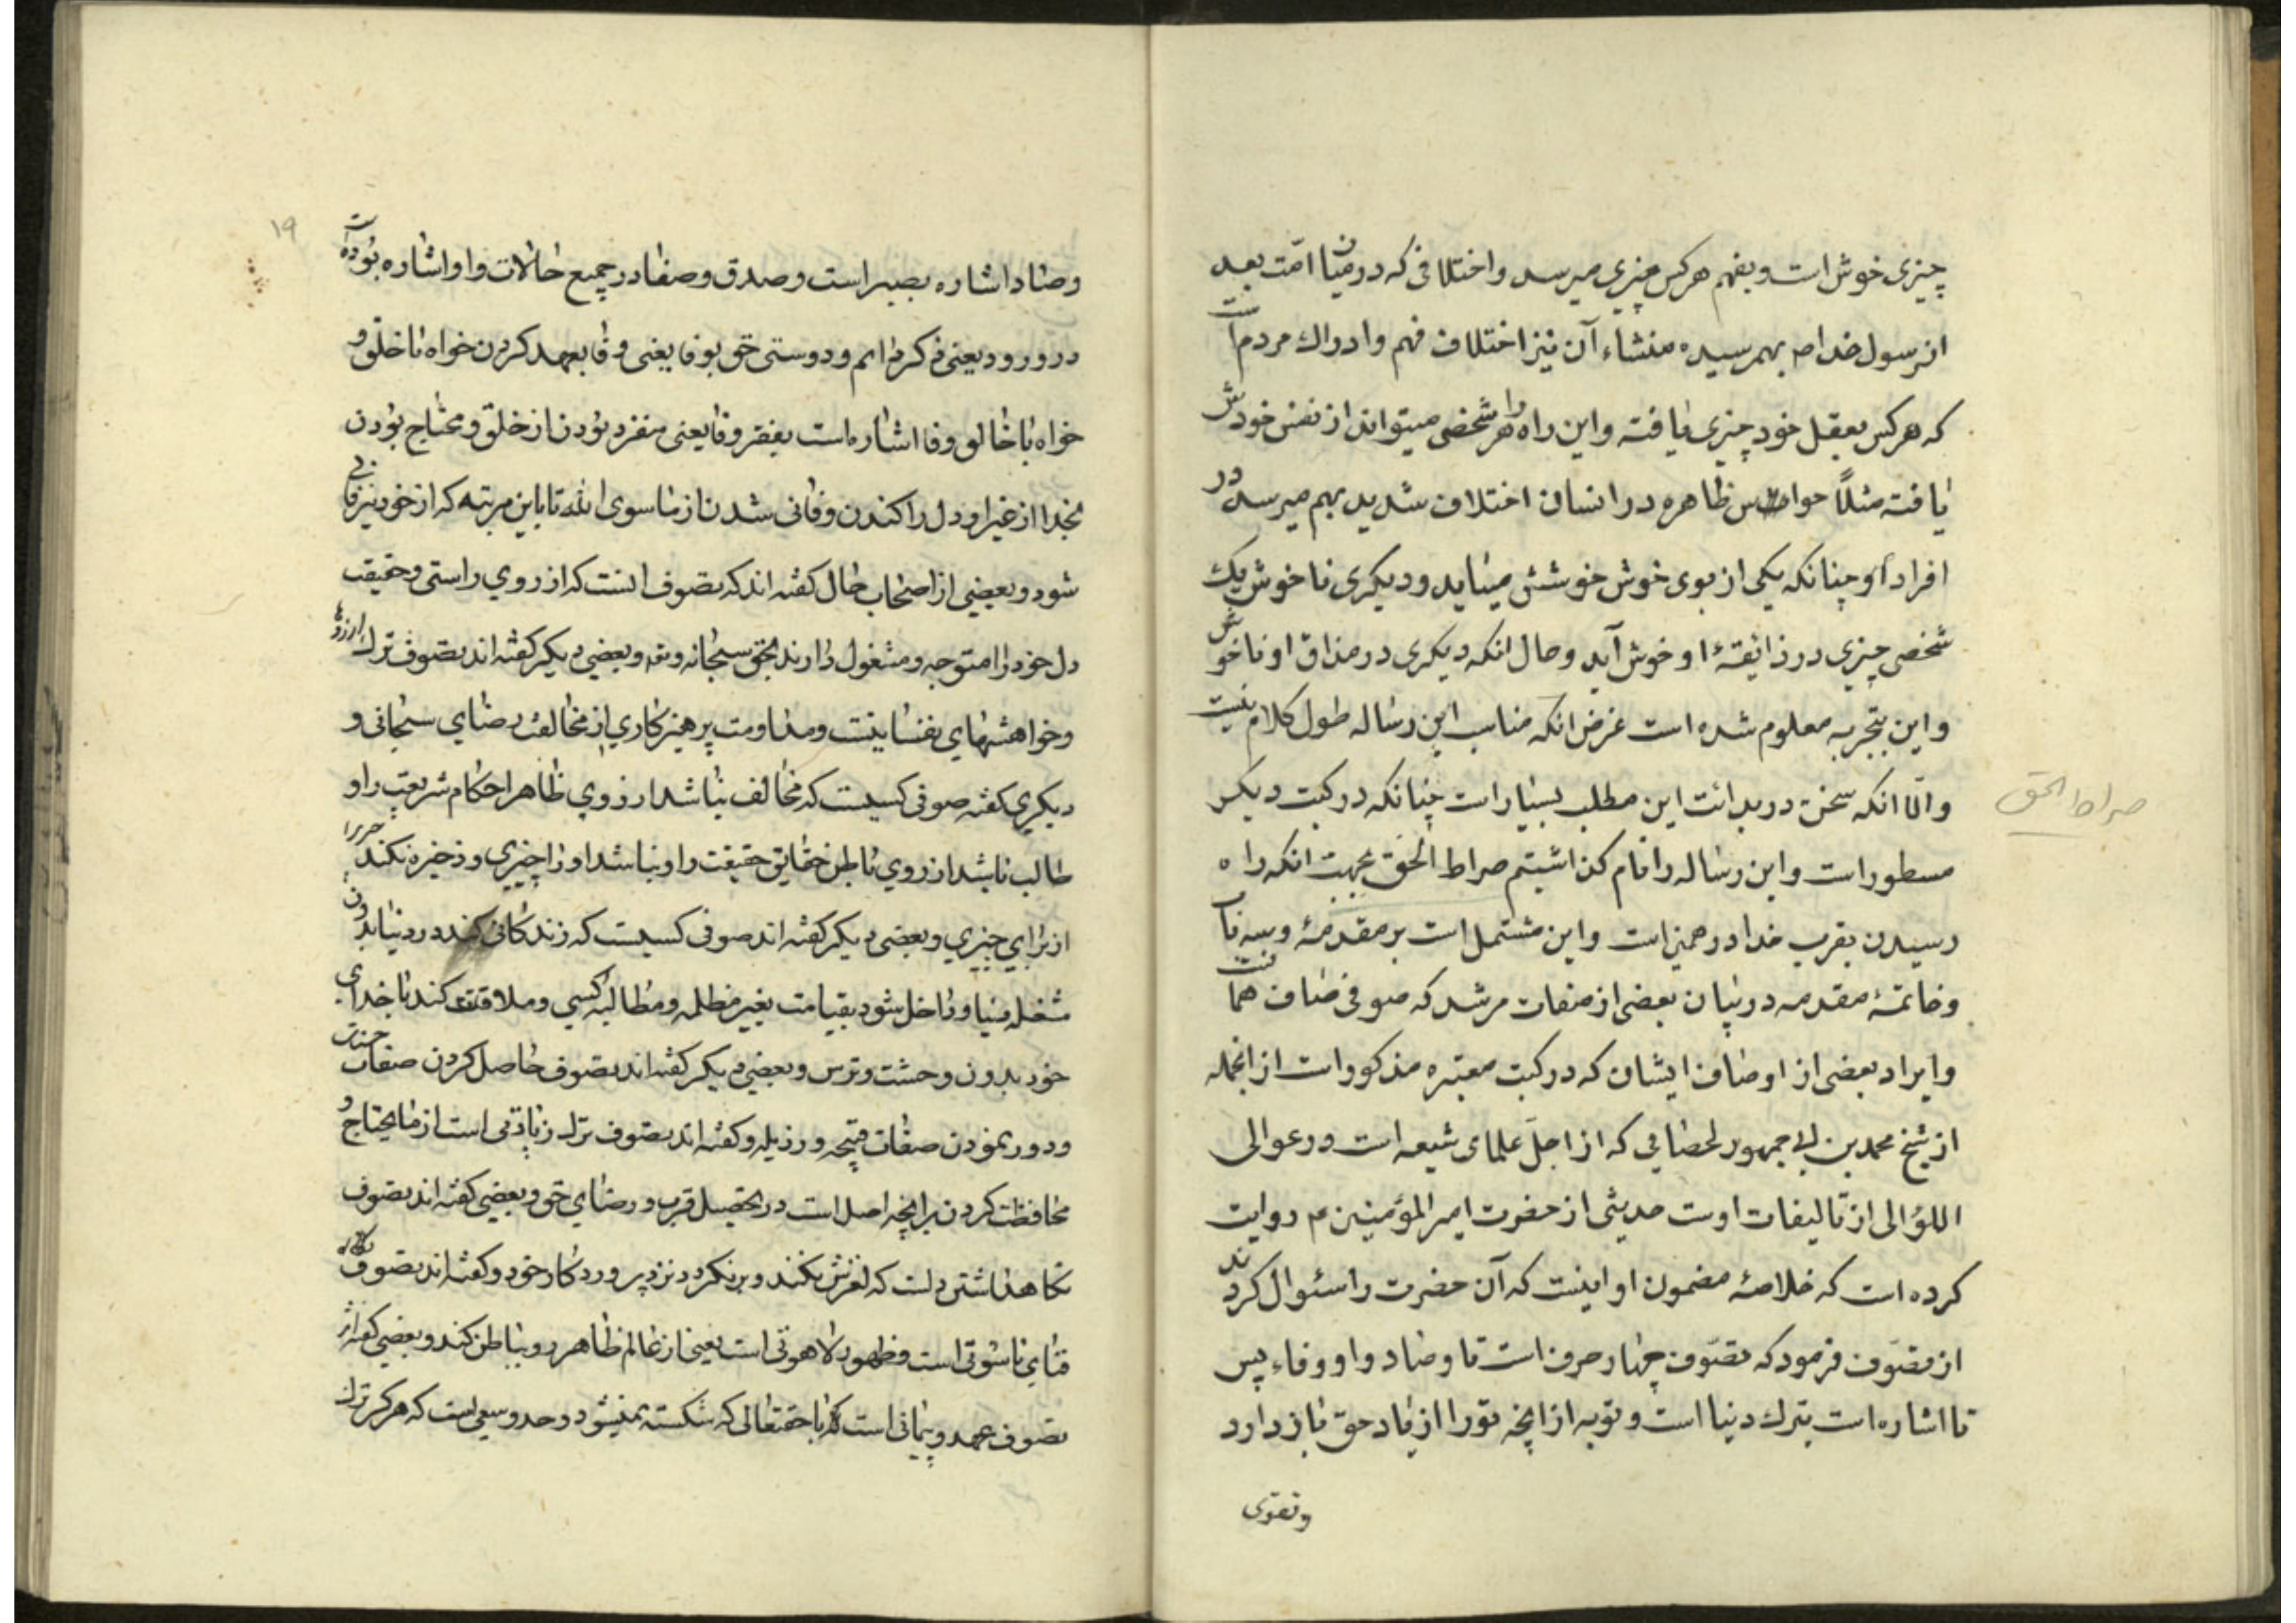 چیزی خوش است و بفهم هرکس چیزی میرسد و اختلافی که در میان امّت بعد
از رسول خدا ص بهمرسیده منشاء آن نیز اختلاف فهم و ادراك مردم است
که هرکس بعقل خود چیزی یافته و این راه را هر شخصی میتواند از نفس خودش
یافته مثلاً حواس ظاهره در انسان اختلاف شدید بهم میرسد در
افراد او چنانکه یکی از بوی خوش خوشش میاید و دیکری ناخوش یك
شخصی چیزی در ذائقهٔ او خوش آید و حال انکه دیکری در مذاق او ناخوش
و این بتجربه معلوم شده است غرض انکه مناسب این رساله طول کلام نیست
و الّا انکه سخن در بدائت این مطلب بسیار است چنانکه در کتب دیکر
صراط الحق
مسطور است و این رساله را نام کذاشتیم صراط الحق بجهت انکه راه
رسیدن بقرب خدا در همین است و این مشتمل است بر مقدمهٔ و سه باب
و خاتمهٔ مقدمه در بیان بعضی از صفات مرشد که صوفی صاف هما نست
و ایراد بعضی از اوصاف ایشان که در کتب معتبره مذکور است از انجمله
از شیخ محمد بن ابی جمهور لحصایی که از اجلّ علمای شیعه است در عوالی
اللؤالی از تالیفات اوست حدیثی از حضرت امیر المؤمنین ع روایت
کرده است که خلاصهٔ مضمون او اینست که آن حضرت را سئوال کردند
از تصّوف فرمود که تصّوف چهار حرف است تا و صاد و واو و فاء پس
تا اشاره است بترك دنیا است و توبه از انچه تو را از یاد حق باز دارد
و تقوی
١٩
و صاد اشاره بصبر است و صدق و صفا در جمیع حالات و واو اشاره بوده است
در ورود یعنی ذکر دایم و دوستی حق بوفا یعنی وفا بعهد کردن خواه با خلق و
خواه با خالق و فا اشاره است بفقر و فا یعنی منفرد بودن از خلق و محتاج بودن
بخدا از غیر او دل را کندن و فانی شدن از ما سوی الله تا باین مرتبه که از خود نیز فانی
شود و بعضی از اصحاب حال کفته اند که تصوف انست که از روی راستی و حقیقت
دل خود را متوجه و مشغول دارند بحق سبحانه و تعه و بعضی دیکر کفته اند تصوف ترك ارزوها
و خواهشهای نفسانیت و مداومت پرهیزکاری از مخالفت رضای سبحانی و
دیکری کفته صوفی کسیست که مخالف نباشد از روی ظاهر احکام شریعت را و
طالب باشد از روی باطن حقایق حقیقت را و نباشد او را چیزی و ذخیره نکند چیزرا
از برای چیزی و بعضی دیکر کفته اند صوفی کسیست که زندکانی کند در دنیا بدون
شغل دنیا و داخل شود بقیامت بغیر مظلمه و مطالبه کسی و ملاقت کند با خدای
خود بدون وحشت و ترس و بعضی دیکر کفته اند تصوف حاصل کردن صفات حسنه
و دور نمودن صفات قبیحه و رذیله و کفته اند تصوف ترك زیادتی است از ما یحتاج و
محافظت کردن بر انچه اصل است در تحصیل قرب و رضای حق و بعضی کفته اند تصوف
نکاهداشتن دلست که لغزش نکند و برنکردد نزد پروردکار خود و کفته اند تصوف
فنای ناسوتی است و ظهور لاهوتی است یعنی از عالم ظاهر رو بباطن کند و بعضی کفته اند
تصوف عهد و پیمانی است که با حقتعالی که شکسته نمیشود و حد وسعی است که هرکز ترك